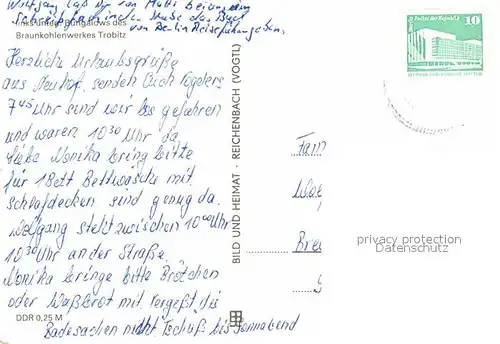 Wolfgang sagt Dir von Mutti
Schreibtisch das Buch
von Berlin
links unten: Bungalows des
Braunkohlenwerkes Tröbitz
Herzliche Urlaubsgrüße
aus Neuhof, senden Euch Voglers
7⁴⁵ Uhr sind wir los gefahren
und waren 10³⁰ Uhr da.
Liebe Monika bring bitte
für 1 Bett Bettwäsche mit.
Schlafdecken sind genug da.
Wolfgang steht zwischen 10⁰⁰ Uhr
10³⁰ Uhr an der Straße.
Monika bringe bitte Brötchen
oder Waßbrot mit vergeßt die
Badesachen nicht Tschüß bis Sonnabend
DDR 0,25 M
BILD UND HEIMAT · REICHENBACH (VOGTL)
10
Fam
Bre
privacy protection
Datenschutz